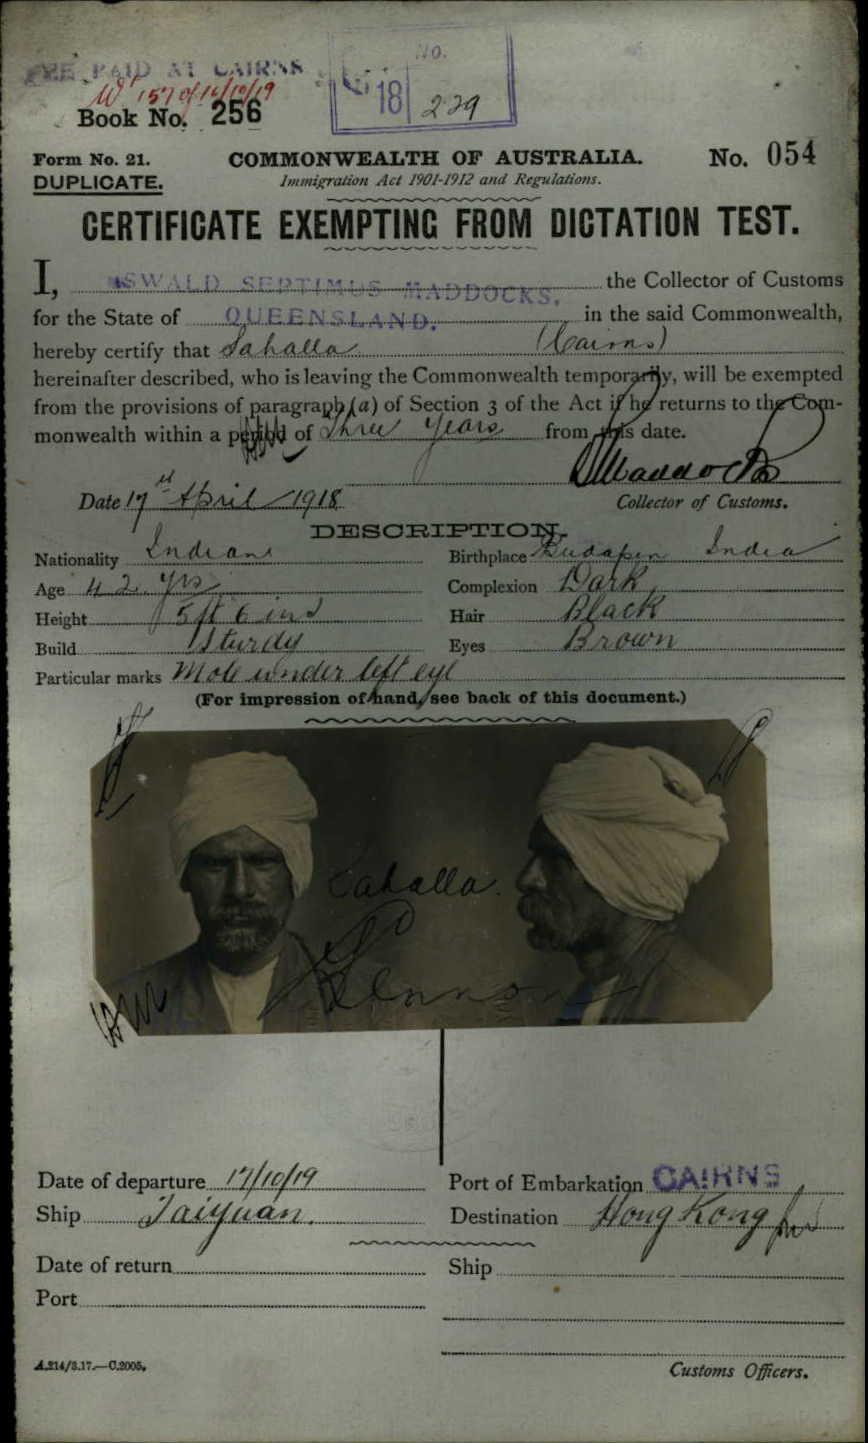 FEE PAID AT CAIRNS
No. 157 of 16/10/19
Book No. 256
No.
18 229
Form No. 21.
DUPLICATE.
COMMONWEALTH OF AUSTRALIA.
No. 054
Immigration Act 1901-1912 and Regulations.
CERTIFICATE EXEMPTING FROM DICTATION TEST.
I, OSWALD SEPTIMUS MADDOCKS, the Collector of Customs
for the State of QUEENSLAND, in the said Commonwealth,
hereby certify that Lahalla (Cairns)
hereinafter described, who is leaving the Commonwealth temporarily, will be exempted
from the provisions of paragraph (a) of Section 3 of the Act if he returns to the Com-
monwealth within a period of Three Years from this date.
Maddocks
Date 17 April 1918
Collector of Customs.
DESCRIPTION.
Nationality Indian
Birthplace India
Age 42 yrs
Complexion Dark
Height 5 ft 6 ins
Hair Black
Build Sturdy
Eyes Brown
Particular marks Mole under left eye
(For impression of hand, see back of this document.)
Lahalla.
Date of departure 17/10/19
Port of Embarkation CAIRNS
Ship Taiyuan.
Destination Hong Kong
Date of return
Ship
Port
A.214/3.17.—C.2005.
Customs Officers.